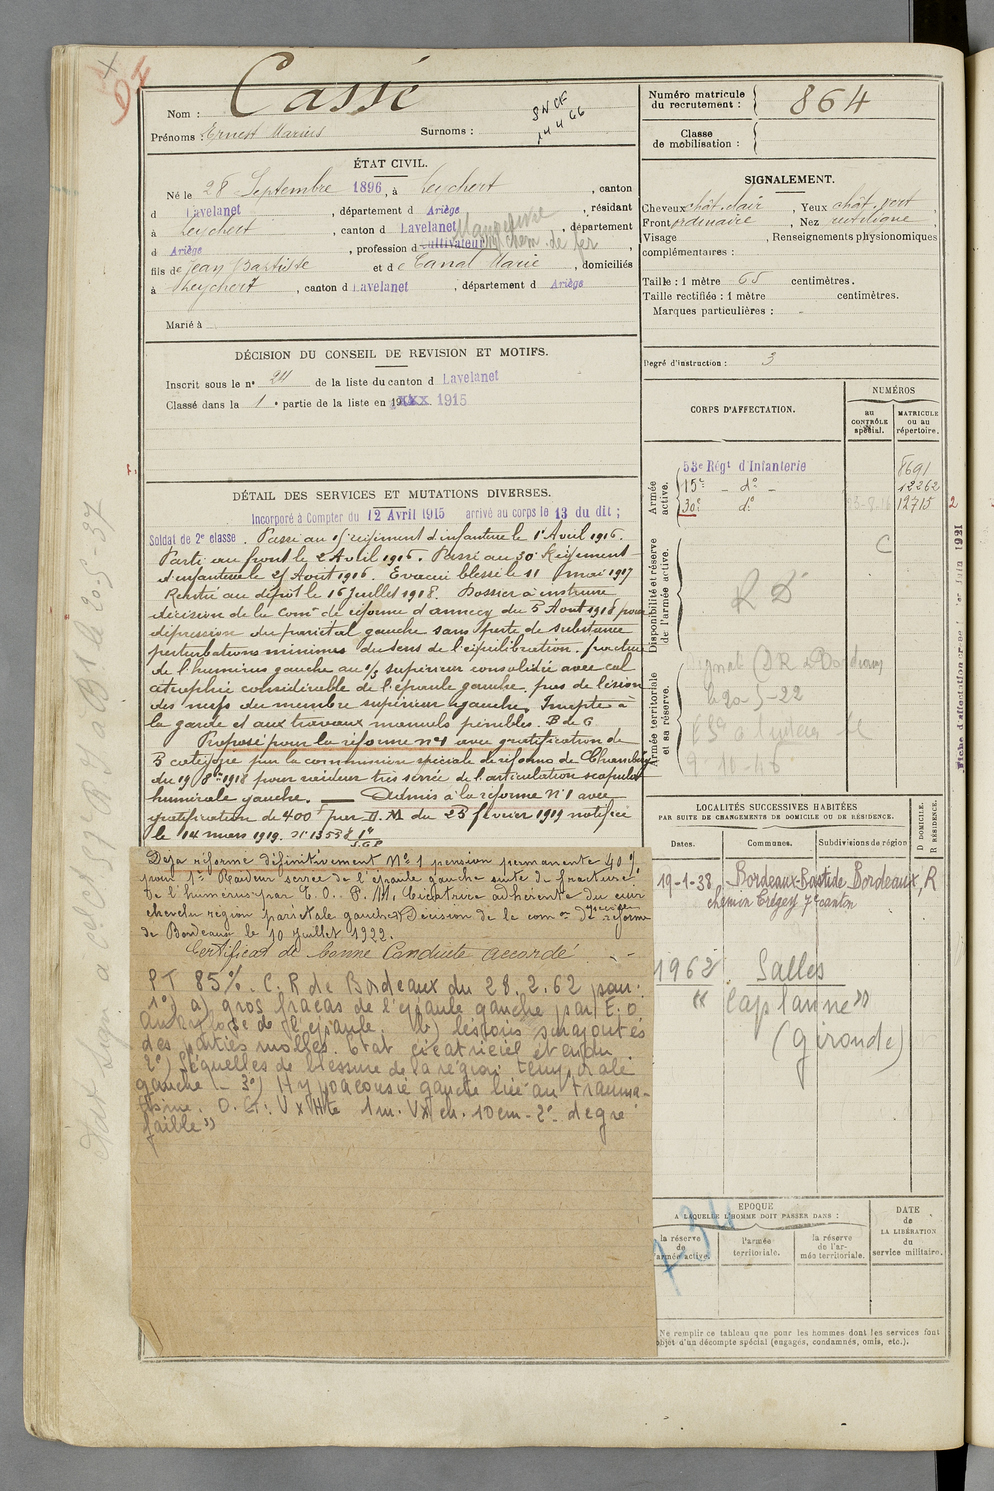 94
Nom : Cassé
SNCF
14 4 66
Prénoms : Ernest Marius Surnoms :
ÉTAT CIVIL.
Né le 28 Septembre 1896, à Leychert, canton
d Lavelanet, département d Ariège, résidant
à Leychert, canton d Lavelanet, département
d Ariège, profession d cultivateur Manœuvre chem. de fer
fils de Jean Baptiste et de Canal Marie, domiciliés
à Leychert, canton d Lavelanet, département d Ariège
Marié à
DÉCISION DU CONSEIL DE REVISION ET MOTIFS.
Inscrit sous le n° 24 de la liste du canton d Lavelanet
Classé dans la 1e partie de la liste en 19 xxx 1915
DÉTAIL DES SERVICES ET MUTATIONS DIVERSES.
Incorporé à Compter du 12 Avril 1915 arrivé au corps le 13 du dit ;
Soldat de 2e classe. Passé au 15e régiment d'infanterie le 1er Avril 1916.
Parti au front le 2 Avril 1916. Passé au 30e Régiment
d'infanterie le 25 Août 1916. Evacué blessé le 11 mai 1917
Rentré au dépôt le 16 Juillet 1918. Dossier à instruire
décision de la Comon de réforme d'annecy du 3 Aout 1918 pour
dépression du pariétal gauche sans perte de substance
perturbations minimes du sens de l'équilibration. fracture
de l'humérus gauche au 1/3 supérieur consolidée avec cal
atrophie considérable de l'épaule gauche, pas de lésion
des nerfs du membre supérieur gauche. Inapte à
la garde et aux travaux manuels pénibles. B de G
Proposé pour la réforme n°1 avec gratification de
5 catégorie par la commission spéciale de réforme de Chambéry
du 19 8bre 1918 pour raideur très serrée de l'articulation scapulo
humérale gauche. — Admis à la réforme N°1 avec
gratification de 400f par D.M. du 23 février 1919 notifiée
le 14 mars 1919.
Déjà réformé définitivement N°1 pension permanente 40%
pour 1° Raideur serrée de l'épaule gauche suite de fracture
de l'humérus par E.O. P.M. Cicatrice adhérente du cuir
chevelu région pariétale gauche. Décision de la comon spéciale de réforme
de Bordeaux le 10 Juillet 1922.
Certificat de bonne Conduite accordé
PT 85%. C.R de Bordeaux du 28.2.62 pour:
1°) a) gros fracas de l'épaule gauche par E.O.
ankylose de l'épaule. b) lésions surajoutés
des parties molles. Etat cicatriciel étendu.
2°) Séquelles de blessure de la région temporale
gauche. – 3°) Hypoacousie gauche liée au trauma-
tisme. O.G: V x Hte 1m. Vx ch. 10cm - 2° degré
faible"
Numéro matricule du recrutement : 864
Classe de mobilisation :
SIGNALEMENT.
Cheveux chât. clair, Yeux chât. vert
Front ordinaire, Nez rectiligne,
Visage , Renseignements physionomiques
complémentaires :
Taille : 1 mètre 65 centimètres.
Taille rectifiée : 1 mètre centimètres.
Marques particulières : -
Degré d'instruction : 3
CORPS D'AFFECTATION.
NUMÉROS
au CONTRÔLE spécial.
MATRICULE ou au répertoire.
Armée active.
53e Régt d'Infanterie 8691
15e – do – 12262
30e do 12715
Disponibilité et réserve de l'armée active.
C
R D
Armée territoriale et sa réserve.
le 20-5-22
9-10-46
Fiche d'affectation
1921
LOCALITÉS SUCCESSIVES HABITÉES
PAR SUITE DE CHANGEMENTS DE DOMICILE OU DE RÉSIDENCE.
D DOMICILE.
R RÉSIDENCE.
Dates. Communes. Subdivisions de région
19-1-38 Bordeaux-Bastide Bordeaux, R
chemin Trégey 7e canton
1962 Salles
"Caplanne"
(Gironde)
ÉPOQUE
A LAQUELLE L'HOMME DOIT PASSER DANS :
la réserve de l'armée active.
l'armée territoriale.
la réserve de l'armée territoriale.
DATE
de
LA LIBÉRATION
du
service militaire.
Ne remplir ce tableau que pour les hommes dont les services font
objet d'un décompte spécial (engagés, condamnés, omis, etc.).